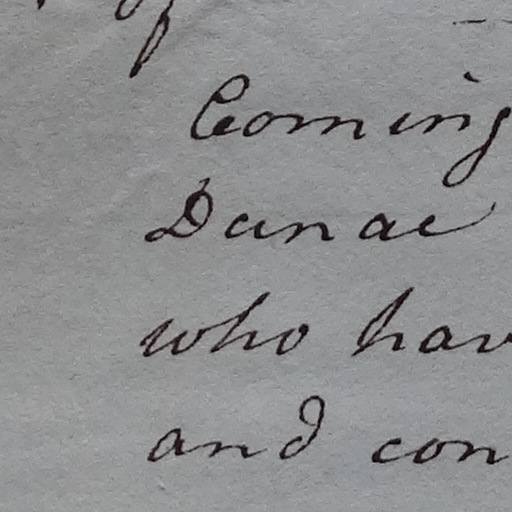 Coming
Danae
who hav
and con